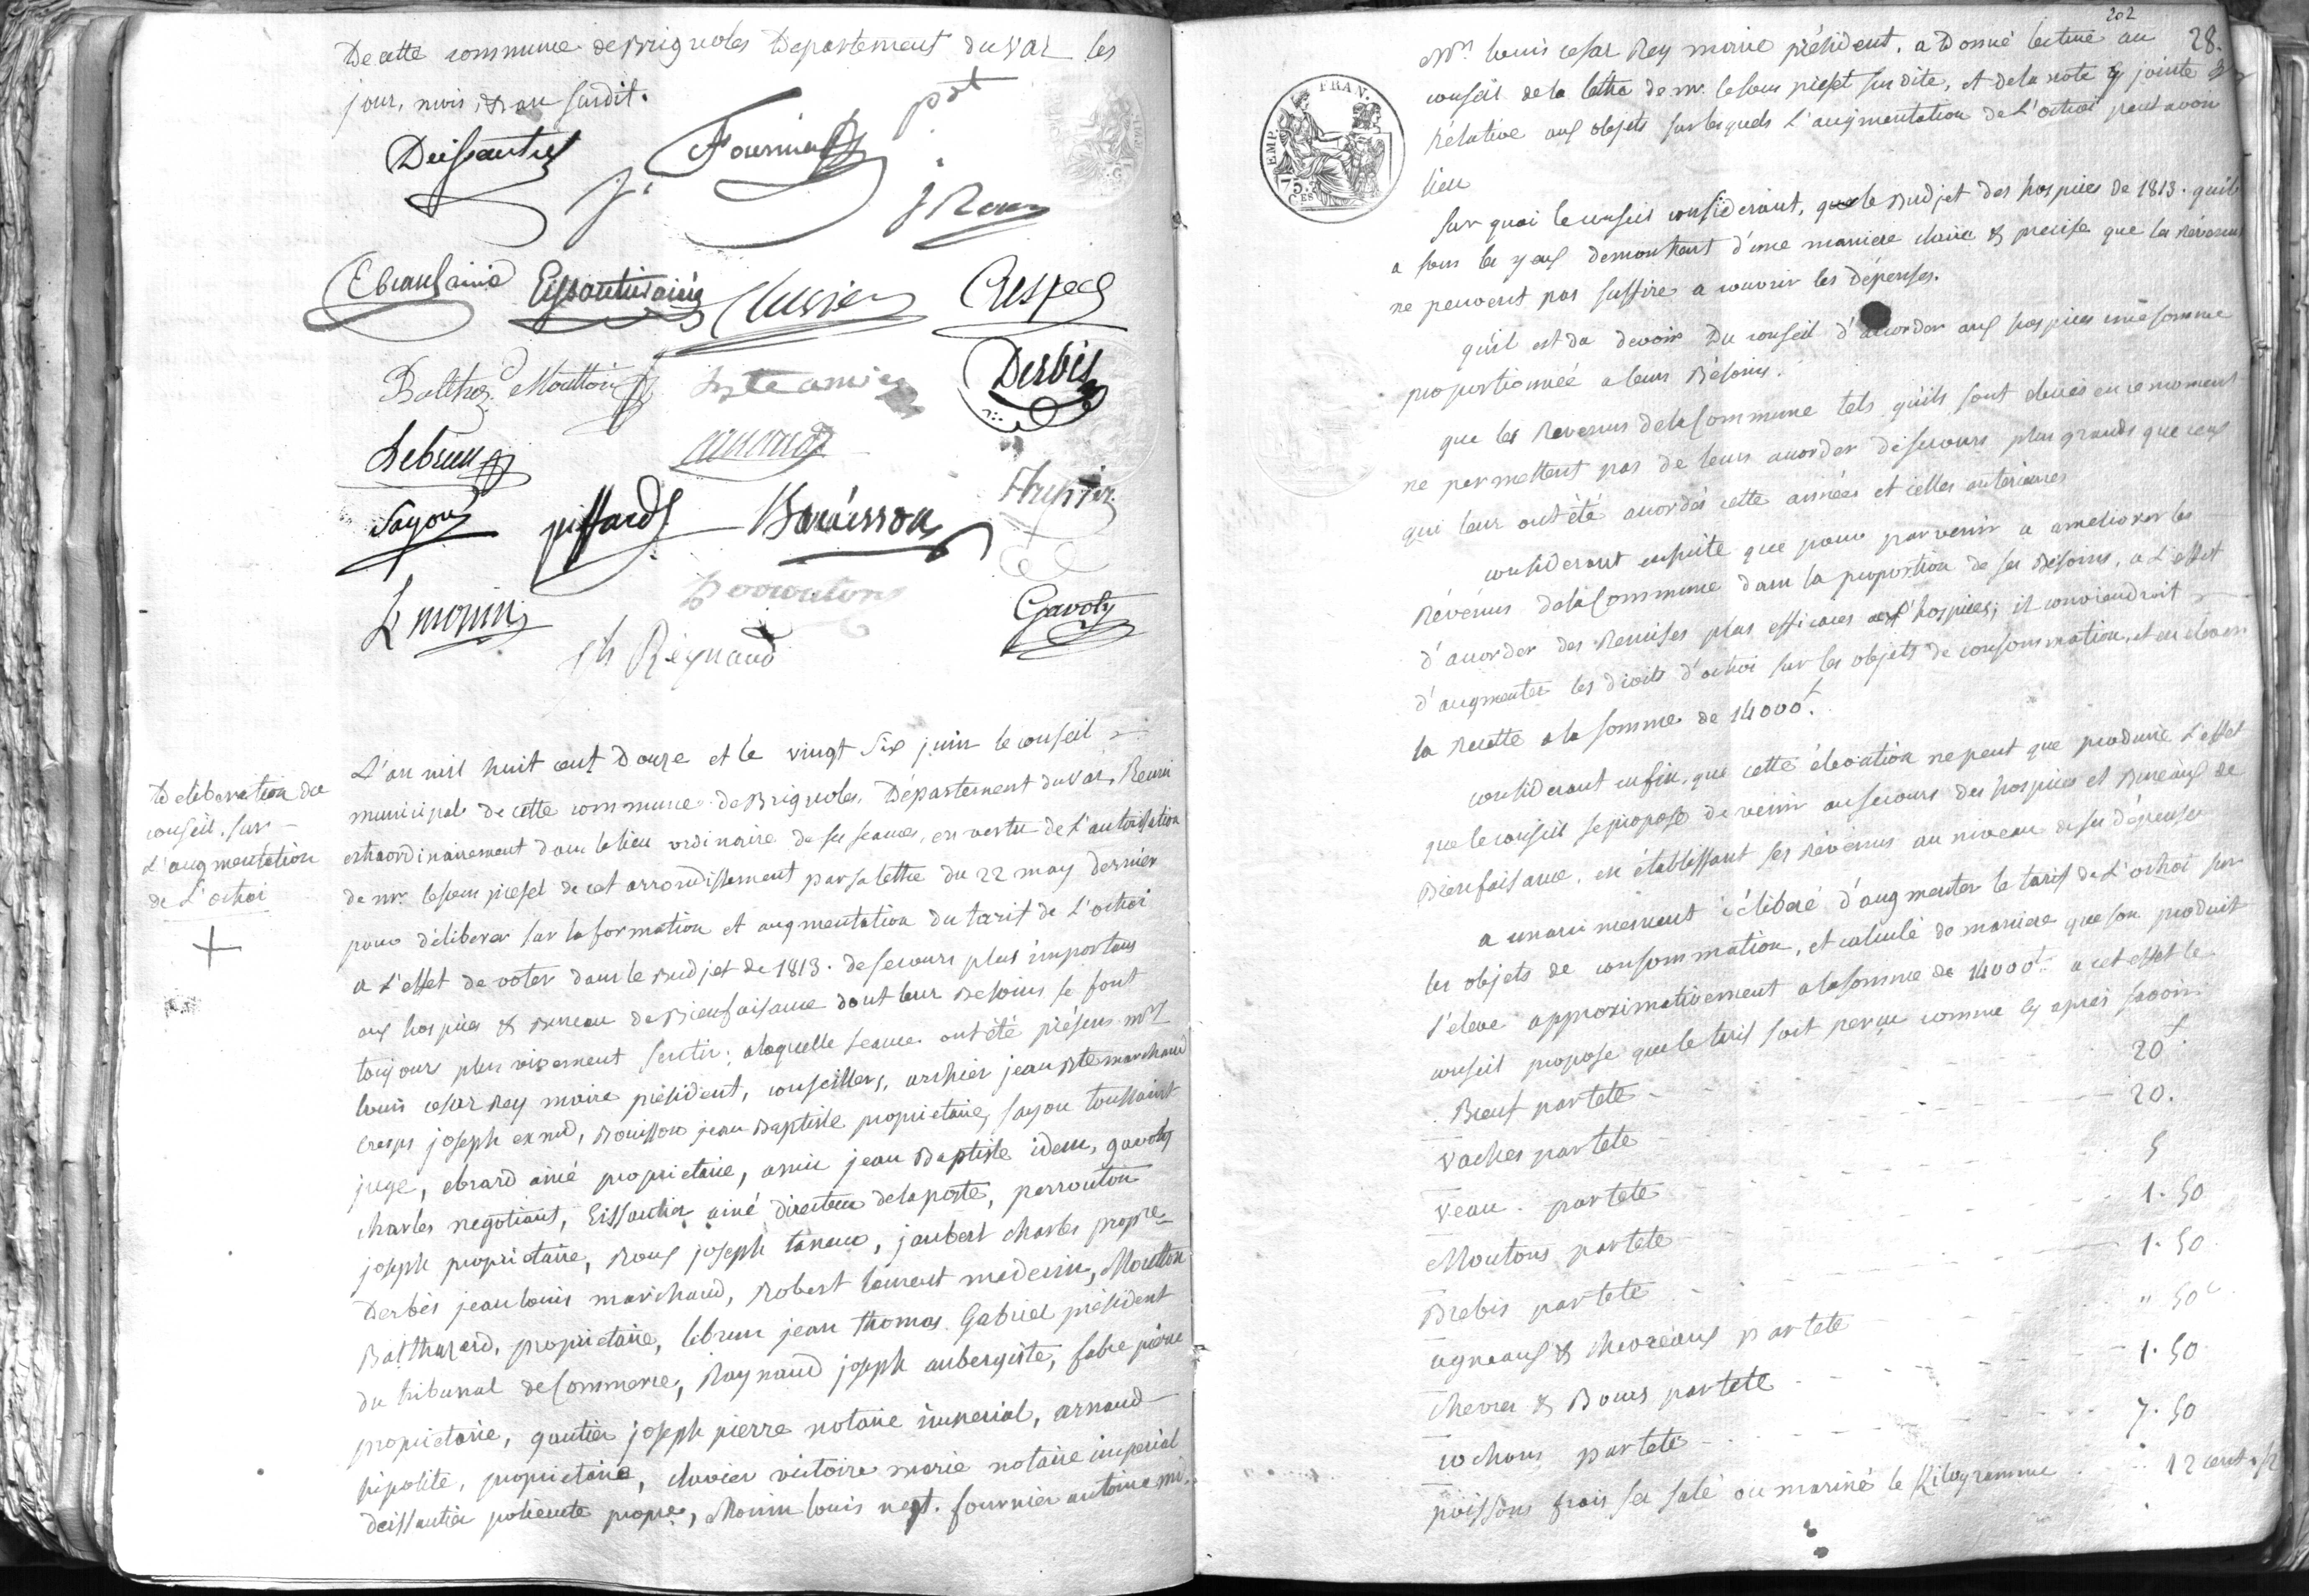 De cette commune de Brignoles Departement du Var les
jour, mois, & an susdit.
Fournier
pdt
J Roux
Ebrard ainé
Eissautier ainé
Clavier
Crespz
Balthd. Moutton
Bte amic
Derbés
Lebrun
arnaud
Sayou
piffard
Bouisson
L monin
perrouton
Gavoty
Jh Reynaud
Deliberation du
conseil, sur
L'augmentation
de L'octroi
L'an mil huit cent Douze et le vingt Six juin le conseil
municipal de cette commune de Brignoles, Département du Var, Reuni
extraordinairement dans le lieu ordinaire de ses seances, en vertu de L'autorisation
de mr. le sous prefet de cet arrondissement par sa lettre du 22 may dernier
pour déliberer sur la formation et augmentation du tarif de L'octroi
a L'effet de voter dans le Budjet de 1813. de secours plus importans
aux hospices & Bureau de Bienfaisance dont leur Besoins se font
toujours plus vivement sentir; a laquelle seance ont été présens mrs
louis cesar Rey maire président, conseillers, archier jean Bte marchand
Cresps joseph ex nd, Bouisson jean Baptiste proprietaire, sayou toussaint
juge, ebrard ainé proprietaire, amic jean Baptiste idem, gavoty
charles negotiant, Eissautier ainé directeur de la poste, perrouton
joseph proprietaire, Roux joseph taneur, jaubert charles propre
Derbés jean louis marchand, Robert laurent medecin, Moutton
Balthazard, proprietaire, lebrun jean thomas Gabriel président
du tribunal de Commerce, Raynaud joseph aubergiste, fabre pierre
proprietaire, gautier joseph pierre notaire imperial, arnaud
hipolite, proprietaire, clavier victoire marie notaire imperial
deissautier policarte propre, Monin louis negt. fournier antoine md.
202
28.
EMP. FRAN.
75. CES
Mr. louis cesar Rey maire président, a Donné lecture au
conseil de la lettre de mr. le sous prefet sus dite, et de la note y jointe
Rélative aux objets sur lesquels L'augmentation de L'octroi peut avoir
lieu
Sur quoi le conseil considerant, que le Budjet des hospices de 1813. qu'il
a sous les yeux demontrent d'une maniere claire & precise que les Révenus
ne peuvent pas suffire a couvrir les dépenses.
qu'il est du devoir Du conseil d'accorder aux hospices une somme
proportionnée a leurs Bésoins.
que les Revenus de la Commune tels qu'ils sont elevés en ce moment
ne permettent pas de leurs accorder de secours plus grands que ceux
qui leur ont été accordés cette année et celles antérieures
considerant ensuite que pour parvenir a ameliorer les
Révénus de la Commune dans la proportion de ses Besoins, a L'effet
d'accorder des Remises plus efficaces aux hospices; il conviendroit
d'augmenter les droits d'octroi sur les objets de consommation, et en elever
la Recette a la somme de 14000f.
considerant enfin, que cette élevation ne peut que produire L'effet
que le conseil se propose de venir au secours des hospices et Bureaux de
Bienfaisance, en établissant ses Révenus au niveau de ses dépenses
a unanimement déliberé d'augmenter le tarif de L'octroi sur
les objets de consommation, et calculé de maniere que son produit
s'eleve approximativement a la somme de 14000f a cet effet le
conseil propose que le tarif soit percu comme cy apres savoir.
Bœuf par tete 20f.
Vaches par tete 20.
Veau. par tete 5
Moutons par tete 1. 50
Brebis par tete 1. 50
agneaux & chevreaux par tete " 50c
chevres & Boucs par tete 1. 50
cochons par tete 7. 50
poissons frais sec salé ou mariné le Kilogramme 12 cent